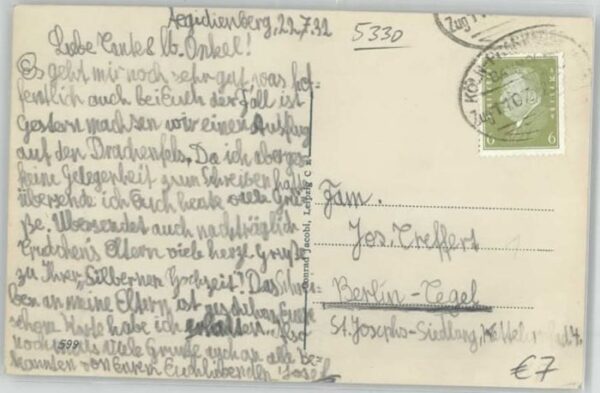 Aegidienberg, 22.7.32
Liebe Tante & lb. Onkel!
Es geht mir noch sehr gut, was hof-
fentlich auch bei Euch der Fall ist
Gestern machten wir einen Ausflug
auf den Drachenfels. Da ich aber
keine Gelegenheit zum Schreiben hatte
übersende ich Euch heute viele Grü-
ße. Übersendet auch nachträglich
Gretchen's Eltern viele herzl. Grüße
zu Ihrer "Silbernen Hochzeit". Das Schrei-
ben an meine Eltern ist geschehen. Eure
schöne Karte habe ich erhalten.
nochmals viele Grüße auch an alle Be-
kannten von Eurem Euch liebenden Josef
599
Conrad Jacobi, Leipzig C
5330
Zug
KÖLN-
Zug
6 6
Fam.
Jos. Treffert
Berlin-Tegel
St. Josephs-Siedlung,
€7